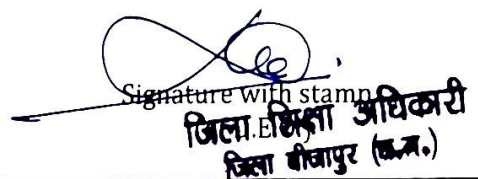 Signature with stamp
जिला शिक्षा अधिकारी
जिला बीजापुर (छ.ग.)